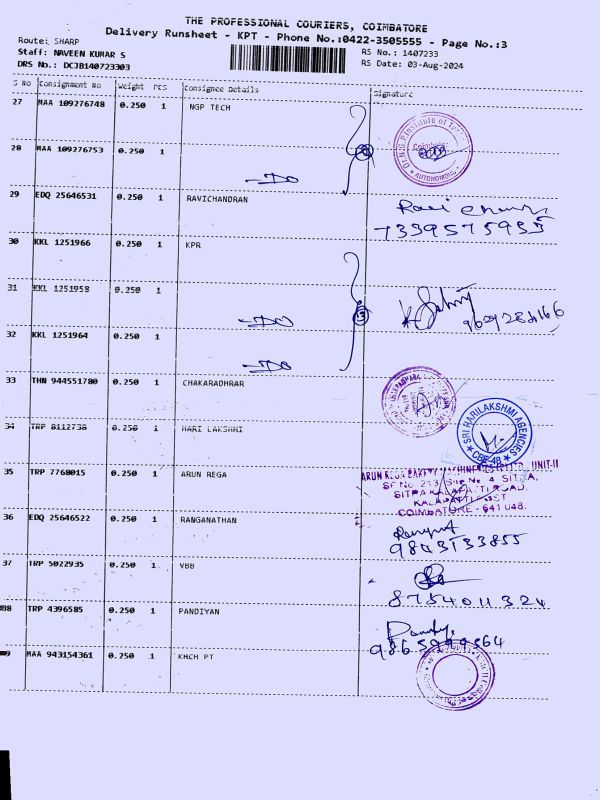 THE PROFESSIONAL COURIERS, COIMBATORE
Delivery Runsheet - KPT - Phone No.:0422-3505555 - Page No.:3
Route: SHARP
Staff: NAVEEN KUMAR S
RS No.: 1407233
DRS No.: DCJB140723303
RS Date: 03-Aug-2024
S No Consignment No Weight PCS Consignee Details Signature
27 MAA 109276748 0.250 1 NGP TECH
28 MAA 109276753 0.250 1
AUTONOMOUS
-DO
29 EDQ 25646531 0.250 1 RAVICHANDRAN
7339575955
30 KKL 1251966 0.250 1 KPR
31 KKL 1251958 0.250 1
-DO
32 KKL 1251964 0.250 1
-DO
33 THN 944551780 0.250 1 CHAKARADHRAR
34 TRP 8112738 0.250 1 HARI LAKSHMI
SRI HARILAKSHMI AGENCIES
CBE-48
35 TRP 7768015 0.250 1 ARUN REGA
UNIT-II
COIMBATORE - 641 048.
36 EDQ 25646522 0.250 1 RANGANATHAN
9843133855
37 TRP 5022935 0.250 1 VBB
8754011324
TRP 4396585 0.250 1 PANDIYAN
MAA 943154361 0.250 1 KMCH PT